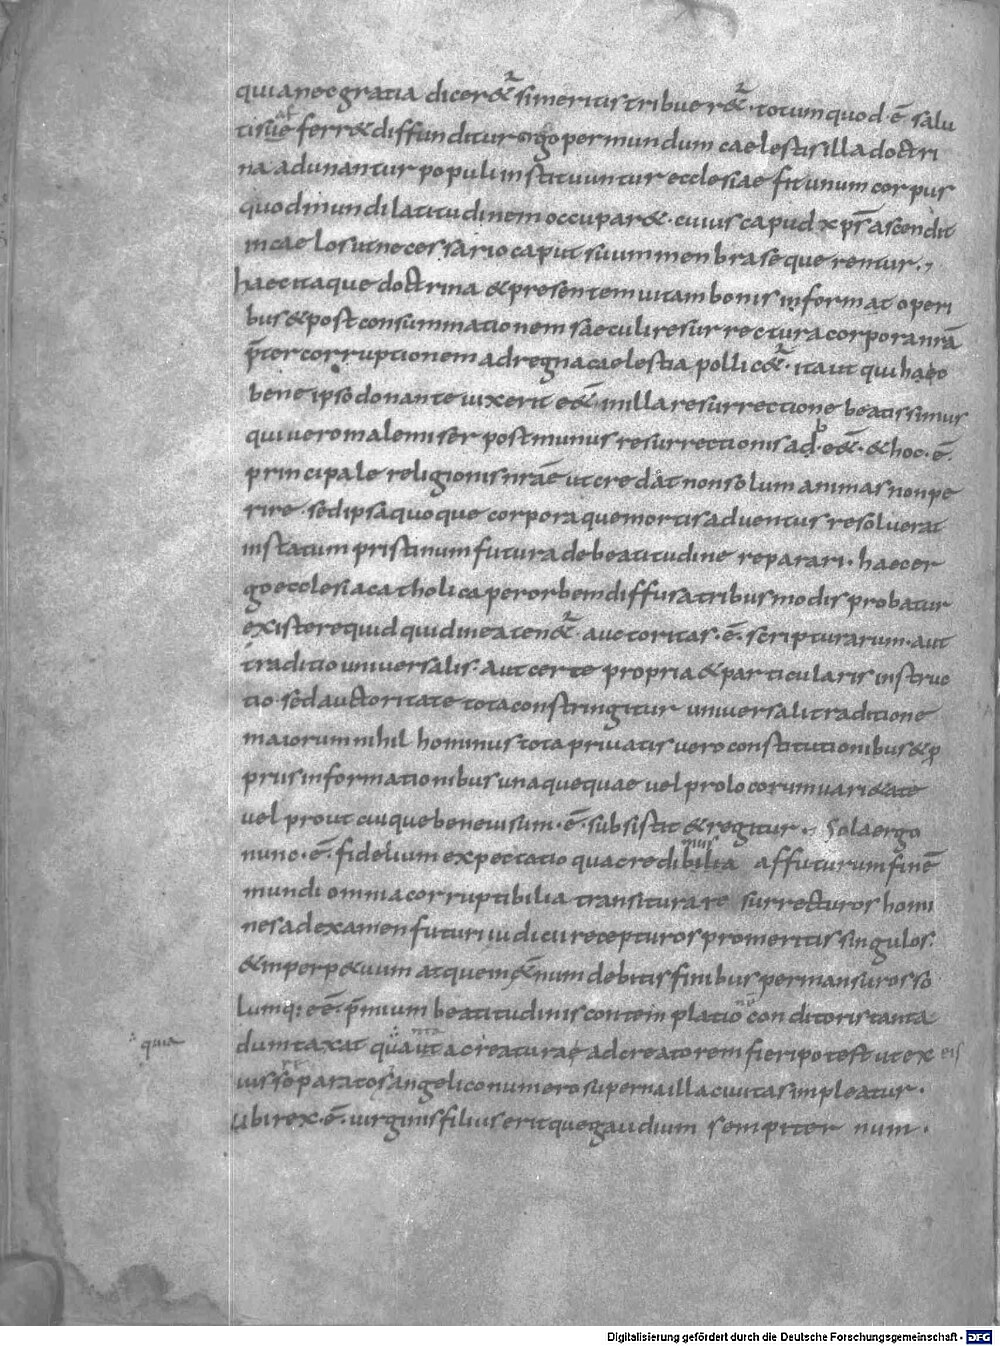 quia nec gratia dicer&ur si meritis tribuer&ur. totum quod .ē. salu
tis ferr& diffunditur ergo per mundum caelestis illa doctri
na adunantur populi instituuntur ecclesiae fit unum corpus
quod mundi latitudinem occupar&. cuius capud xp̄s ascendit
in caelos ut necessario caput suum menbra sequerentur.,
haec itaque doctrina & presentem uitam bonis informat operi
bus & post consummationem saeculi resurrectura corpora nr̄a
p̄ter corruptionem ad regna caelestia pollic&ur. ita ut qui haec
bene ipso donante uixerit e&̄ in illa resurrectione beatissimus
qui uero male miser post munus resurrectionis & hoc .ē.
principale religionis nr̄ae ut credat non solum animas non pe
rire. sed ipsa quoque corpora que mortis aduentus resoluerat
in statum pristinum futura de beatitudine reparari. haec er
go ecclesia catholica per orbem diffusa tribus modis probatur
existere quidquid in ea ten&ur. auctoritas .ē. scripturarum. aut
traditio uniuersalis. aut certe propria & particularis instruc
tio. sed auctoritate tota constringitur uniuersali traditione
maiorum nihil hominus tota priuatis uero constitutionibus & p
priis informationibus unaquequae uel pro locorum uari&ate
uel prout cuique bene uisum .ē. subsistit & regitur., Sola ergo
nunc .ē. fidelium expectatio qua credibilia affuturum finē
mundi omnia corruptibilia transitura resurrecturos homi
nes ad examen futuri iudicii recepturos pro meritis singulos.
& in perp&uum atque in &̄num debitis finibus permansuros so
lumq: e&̄. p̄mium beatitudinis contemplatio conditoris tanta
quia
dumtaxat quanta a creaturae ad creatorem fieri potest ut ex eis
paratos angelico numero superna illa ciuitas impleatur.
Ubi rex .ē. uirginis filius eritque gaudium sempiternum.
Digitalisierung gefördert durch die Deutsche Forschungsgemeinschaft - DFG